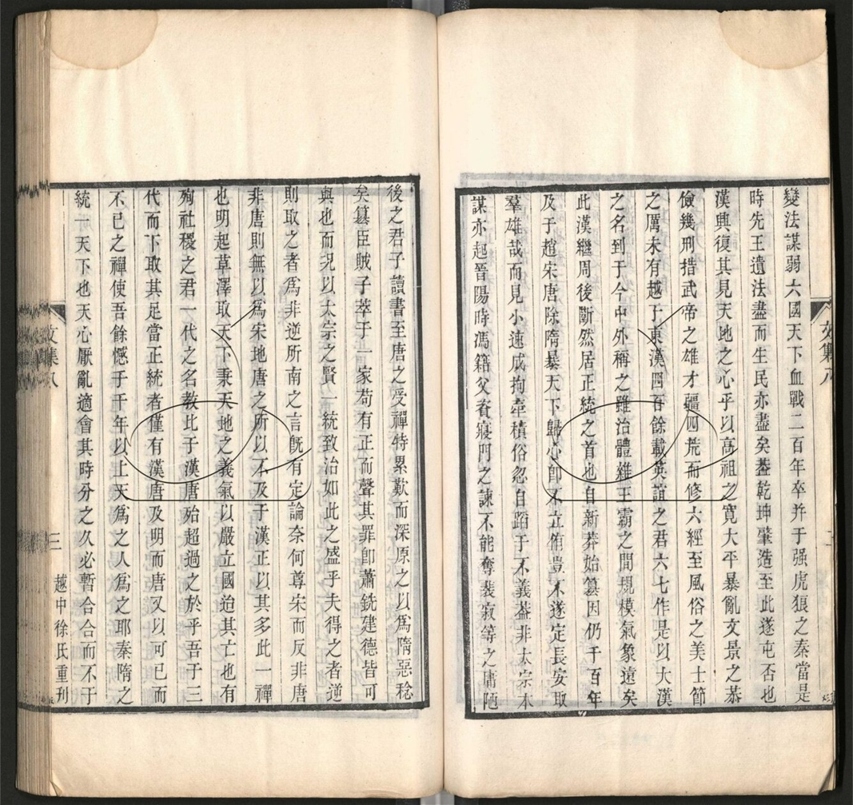 變法謀弱六國天下血戰二百年卒并于强虎狼之秦當是
時先王遺法盡而生民亦盡矣蓋乾坤肇造至此遂屯否也
漢興復其見天地之心乎以高祖之寬大平暴亂文景之恭
儉幾刑措武帝之雄才疆四荒而修六經至風俗之美士節
之厲未有越于東漢四百餘載英誼之君六七作是以大漢
之名到于今中外稱之雖治體雜王霸之間規模氣象遠矣
此漢繼周後斷然居正統之首也自新莽始簒因仍千百年
及于趙宋唐除隋暴天下歸心卽不立侑豈不遂定長安取
羣雄哉而見小速成拘牽積俗忽自蹈于不義葢非太宗本
謀亦起晉陽時馮籍父者寢門之諫不能奪裴寂等之庸陋
後之君子讀書至唐之受禪特累歎而深原之以爲隋惡稔
矣簒臣賊子萃于一家苟有正而聲其罪卽蕭銑建德皆可
與也而況以太宗之賢一統致治如此之盛乎夫得之者逆
則取之者爲非逆所南之言旣有定論奈何尊宋而反非唐
非唐則無以爲宋地唐之所以不及于漢正以其多此一禪
也明起草澤取天下秉天地之義氣以嚴立國迨其亡也有
殉社稷之君一代之名教比于漢唐殆超過之於乎吾于三
代而下取其足當正統者僅有漢唐及明而唐又以可已而
不已之禪使吾餘慨于千年以上天爲之人爲之耶秦隋之
統一天下也天心厭亂適會其時分之久必暫合合而不于
文集八
三
越中徐氏重刋